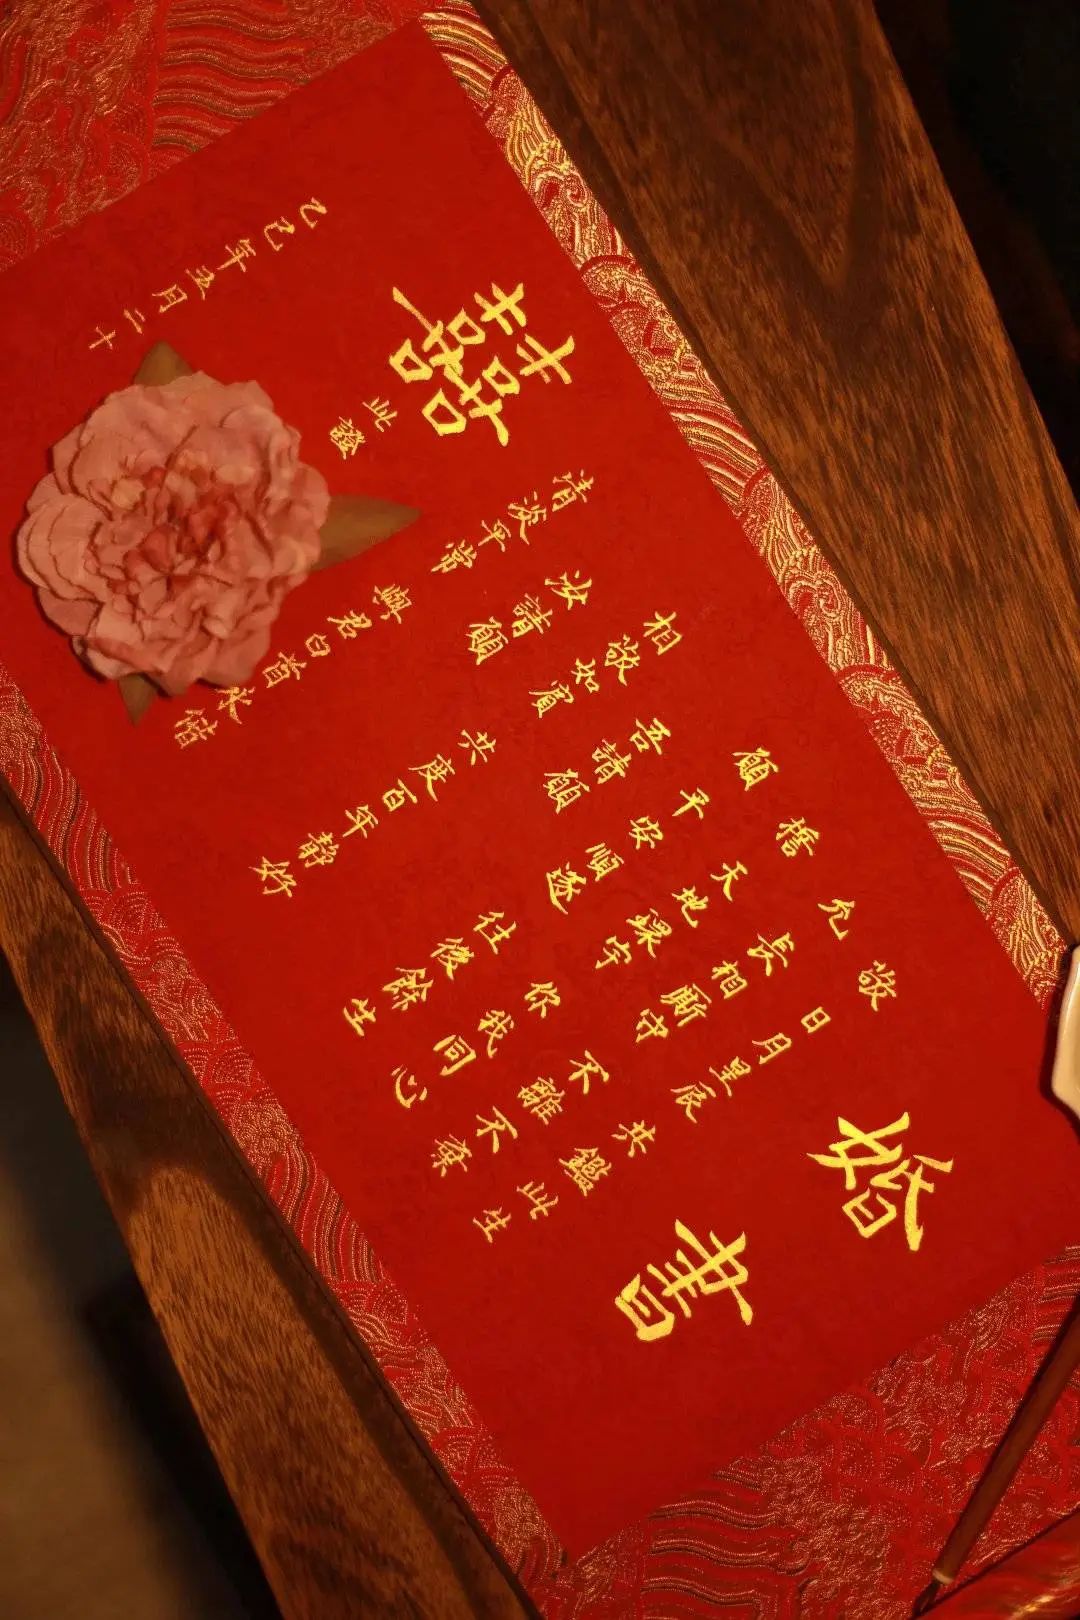 婚書
敬日月星辰 共鑑此生
允長相厮守 不離不棄
天地宇 你我同心
願平安順遂 往後餘生
吾請願
相敬如賓 共度百年靜好
汝請願
清淡平常 與君白首永偕
此證
囍
乙巳年五月二十